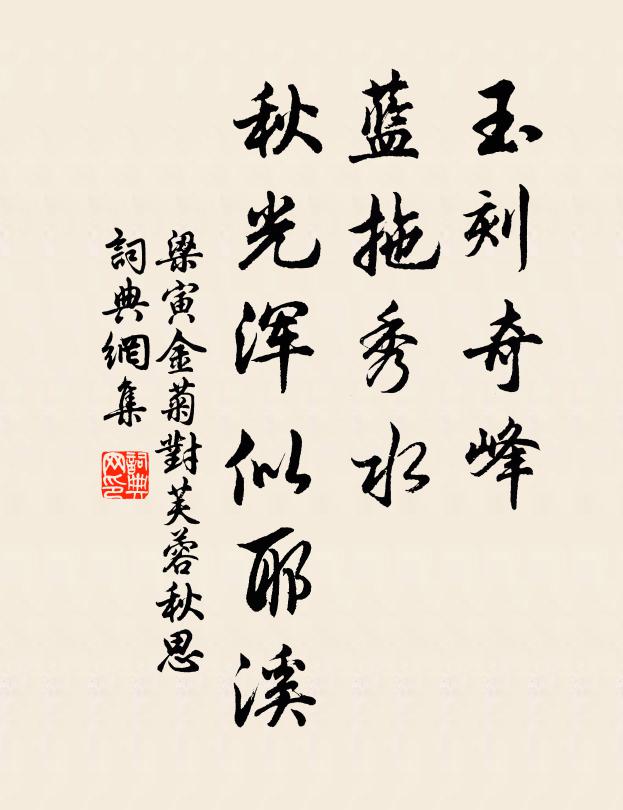 玉刻奇峰
蓝拖秀水
秋光浑似耶溪
梁寅金菊對芙蓉秋思
詞典網集
詞典网印